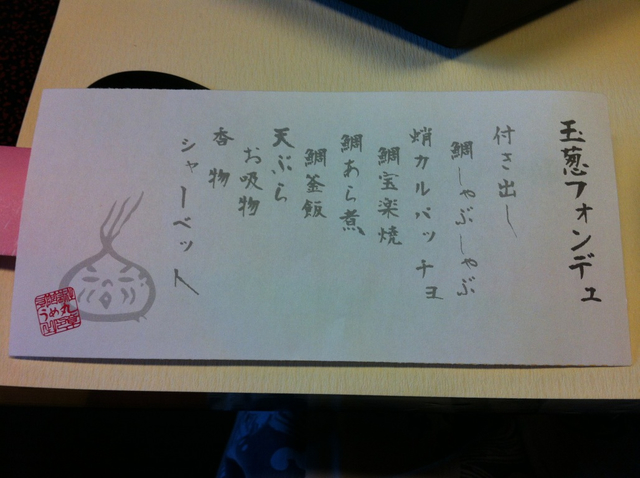 玉葱フォンデュ
付き出し
鯛しゃぶしゃぶ
蛸カルパッチョ
鯛宝楽焼
鯛あら煮
鯛釜飯
天ぷら
お吸物
香物
シャーベット
うめ丸